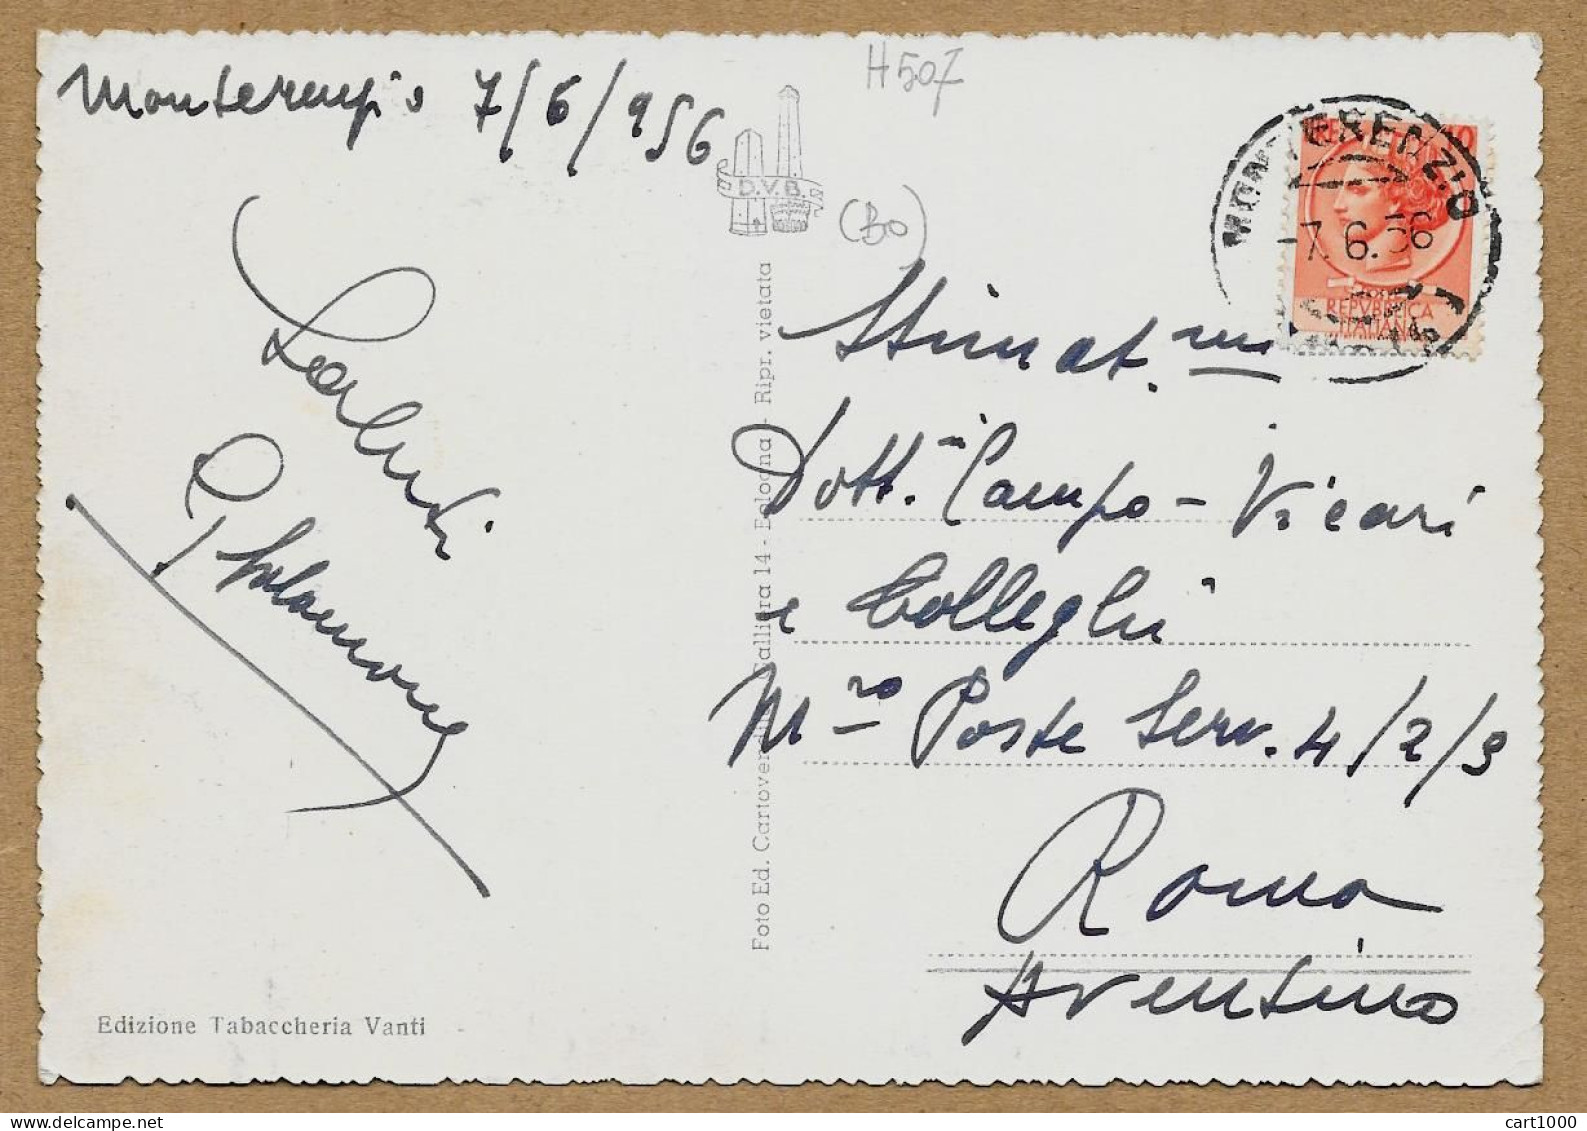 Monterenzio 7/6/956
H507
D.V.B.
(BO)
MONTERENZIO
-7.6.56
REPVBBLICA
ITALIANA
Saluti
Stimat.mi
Dott.ri Campo - Vicari
e Colleghi
M.ro Poste Serv. 4/2/3
Roma
Aventino
Foto Ed. Cartovendita Galliera 14 - Bologna - Ripr. vietata
Edizione Tabaccheria Vanti
cart1000